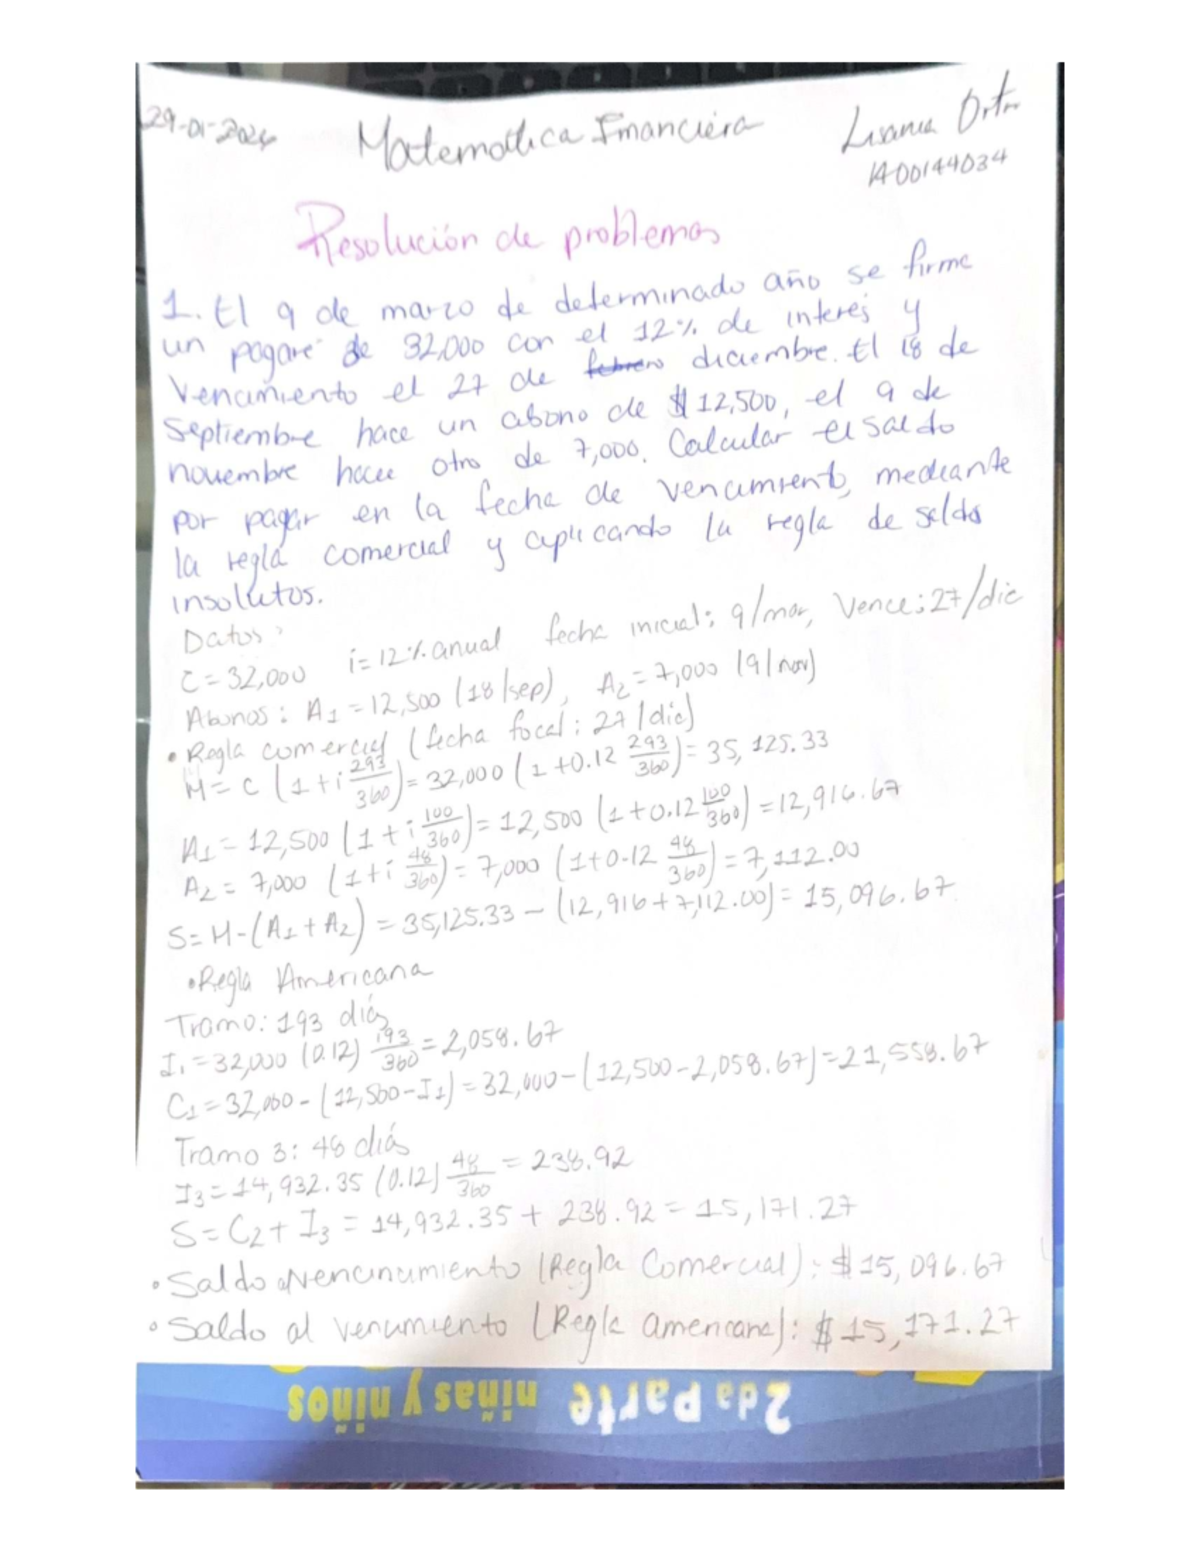 29-01-2024 Matematica Financiera Lisania Ortiz
A00144034
Resolución de problemas
1. El 9 de marzo de determinado año se firme
un pagaré de 32,000 con el 12% de interés y
Vencimiento el 27 de febrero diciembre. El 18 de
Septiembre hace un abono de $12,500, el 9 de
noviembre hace otro de 7,000. Calcular el saldo
por pagar en la fecha de vencimiento, mediante
la regla comercial y aplicando la regla de saldos
insolutos.
Datos:
C=32,000 i=12% anual fecha inicial: 9/mar, Vence: 27/dic
Abonos: A1=12,500 (18/sep), A2=7,000 (9/nov)
• Regla comercial (fecha focal: 27/dic)
M=C(1+i 293/360)=32,000(1+0.12 293/360)=35,125.33
A1=12,500(1+i 100/360)=12,500(1+0.12 100/360)=12,916.67
A2=7,000(1+i 48/360)=7,000(1+0.12 48/360)=7,112.00
S=M-(A1+A2)=35,125.33-(12,916+7,112.00)=15,096.67
• Regla Americana
Tramo: 193 diás
I1=32,000(0.12) 193/360=2,058.67
C1=32,000-(12,500-I1)=32,000-(12,500-2,058.67)=21,558.67
Tramo 3: 48 diás
I3=14,932.35(0.12) 48/360=238.92
S=C2+I3=14,932.35+238.92=15,171.27
• Saldo (Regla Comercial): $15,096.67
• Saldo al vencimiento (Regla americana): $15,171.27
2da Parte niñas y niños